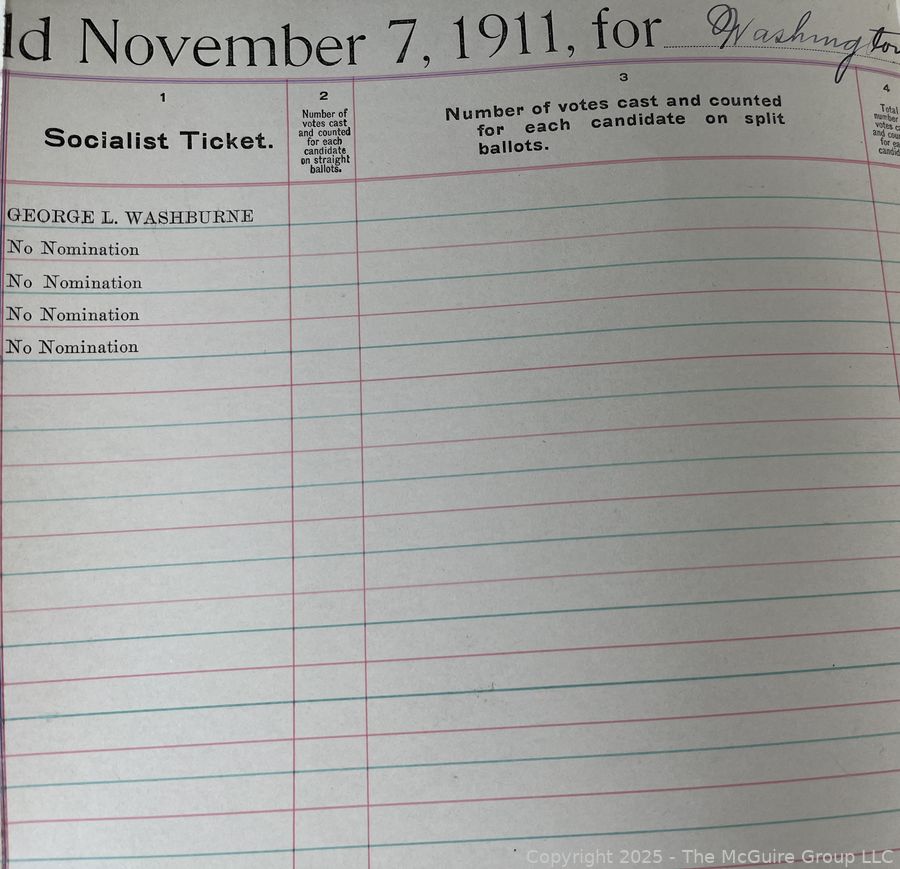 ld November 7, 1911, for Washington
1
Socialist Ticket.
2
Number of
votes cast
and counted
for each
candidate
on straight
ballots.
3
Number of votes cast and counted
for each candidate on split
ballots.
4
Total
number
votes ca
and cou
for ea
candid
GEORGE L. WASHBURNE
No Nomination
No Nomination
No Nomination
No Nomination
Copyright 2025 - The McGuire Group LLC